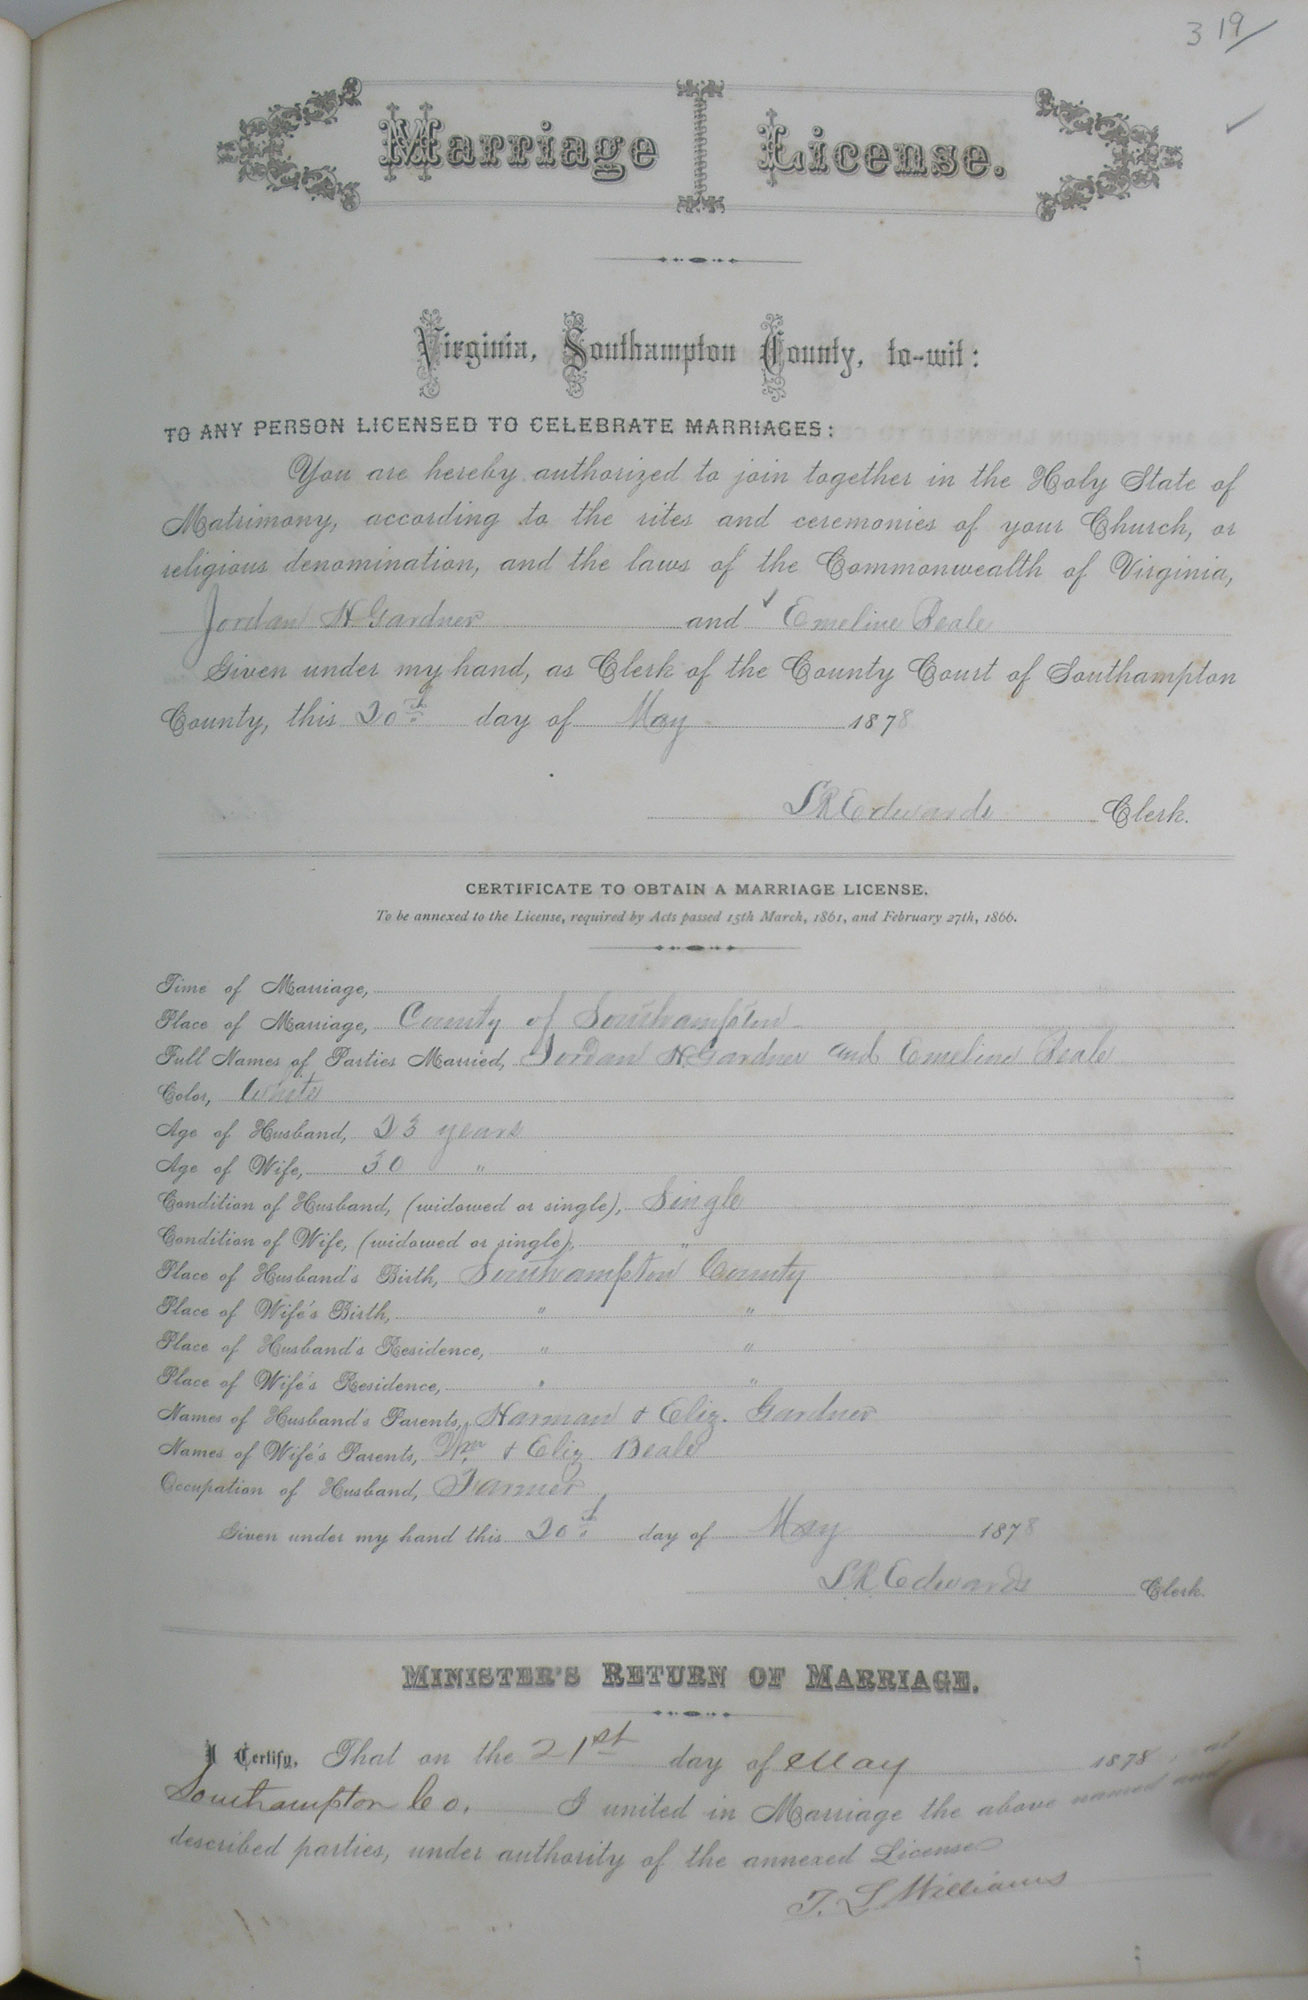 3 19/
Marriage License.
Virginia, Southampton County, to-wit:
TO ANY PERSON LICENSED TO CELEBRATE MARRIAGES:
You are hereby authorized to join together in the Holy State of
Matrimony, according to the rites and ceremonies of your Church, or
religious denomination, and the laws of the Commonwealth of Virginia,
Jordan H Gardner and Emeline Beale
Given under my hand, as Clerk of the County Court of Southampton
County, this 20th day of May 1878
L R Edwards Clerk.
CERTIFICATE TO OBTAIN A MARRIAGE LICENSE.
To be annexed to the License, required by Acts passed 15th March, 1861, and February 27th, 1866.
Time of Marriage,
Place of Marriage, County of Southampton
Full Names of Parties Married, Jordan H Gardner and Emeline Beale
Color, White
Age of Husband, 23 years
Age of Wife, 30 "
Condition of Husband, (widowed or single), Single
Condition of Wife, (widowed or single), "
Place of Husband's Birth, Southampton County
Place of Wife's Birth, " "
Place of Husband's Residence, " "
Place of Wife's Residence, " "
Names of Husband's Parents, Harman & Eliz. Gardner
Names of Wife's Parents, Wm & Eliz Beale
Occupation of Husband, Farmer
Given under my hand this 20th day of May 1878
L R Edwards Clerk.
MINISTER'S RETURN OF MARRIAGE.
I Certify, That on the 21st day of May 1878, at
Southampton Co. I united in Marriage the above named and
described parties, under authority of the annexed License
T. L Williams